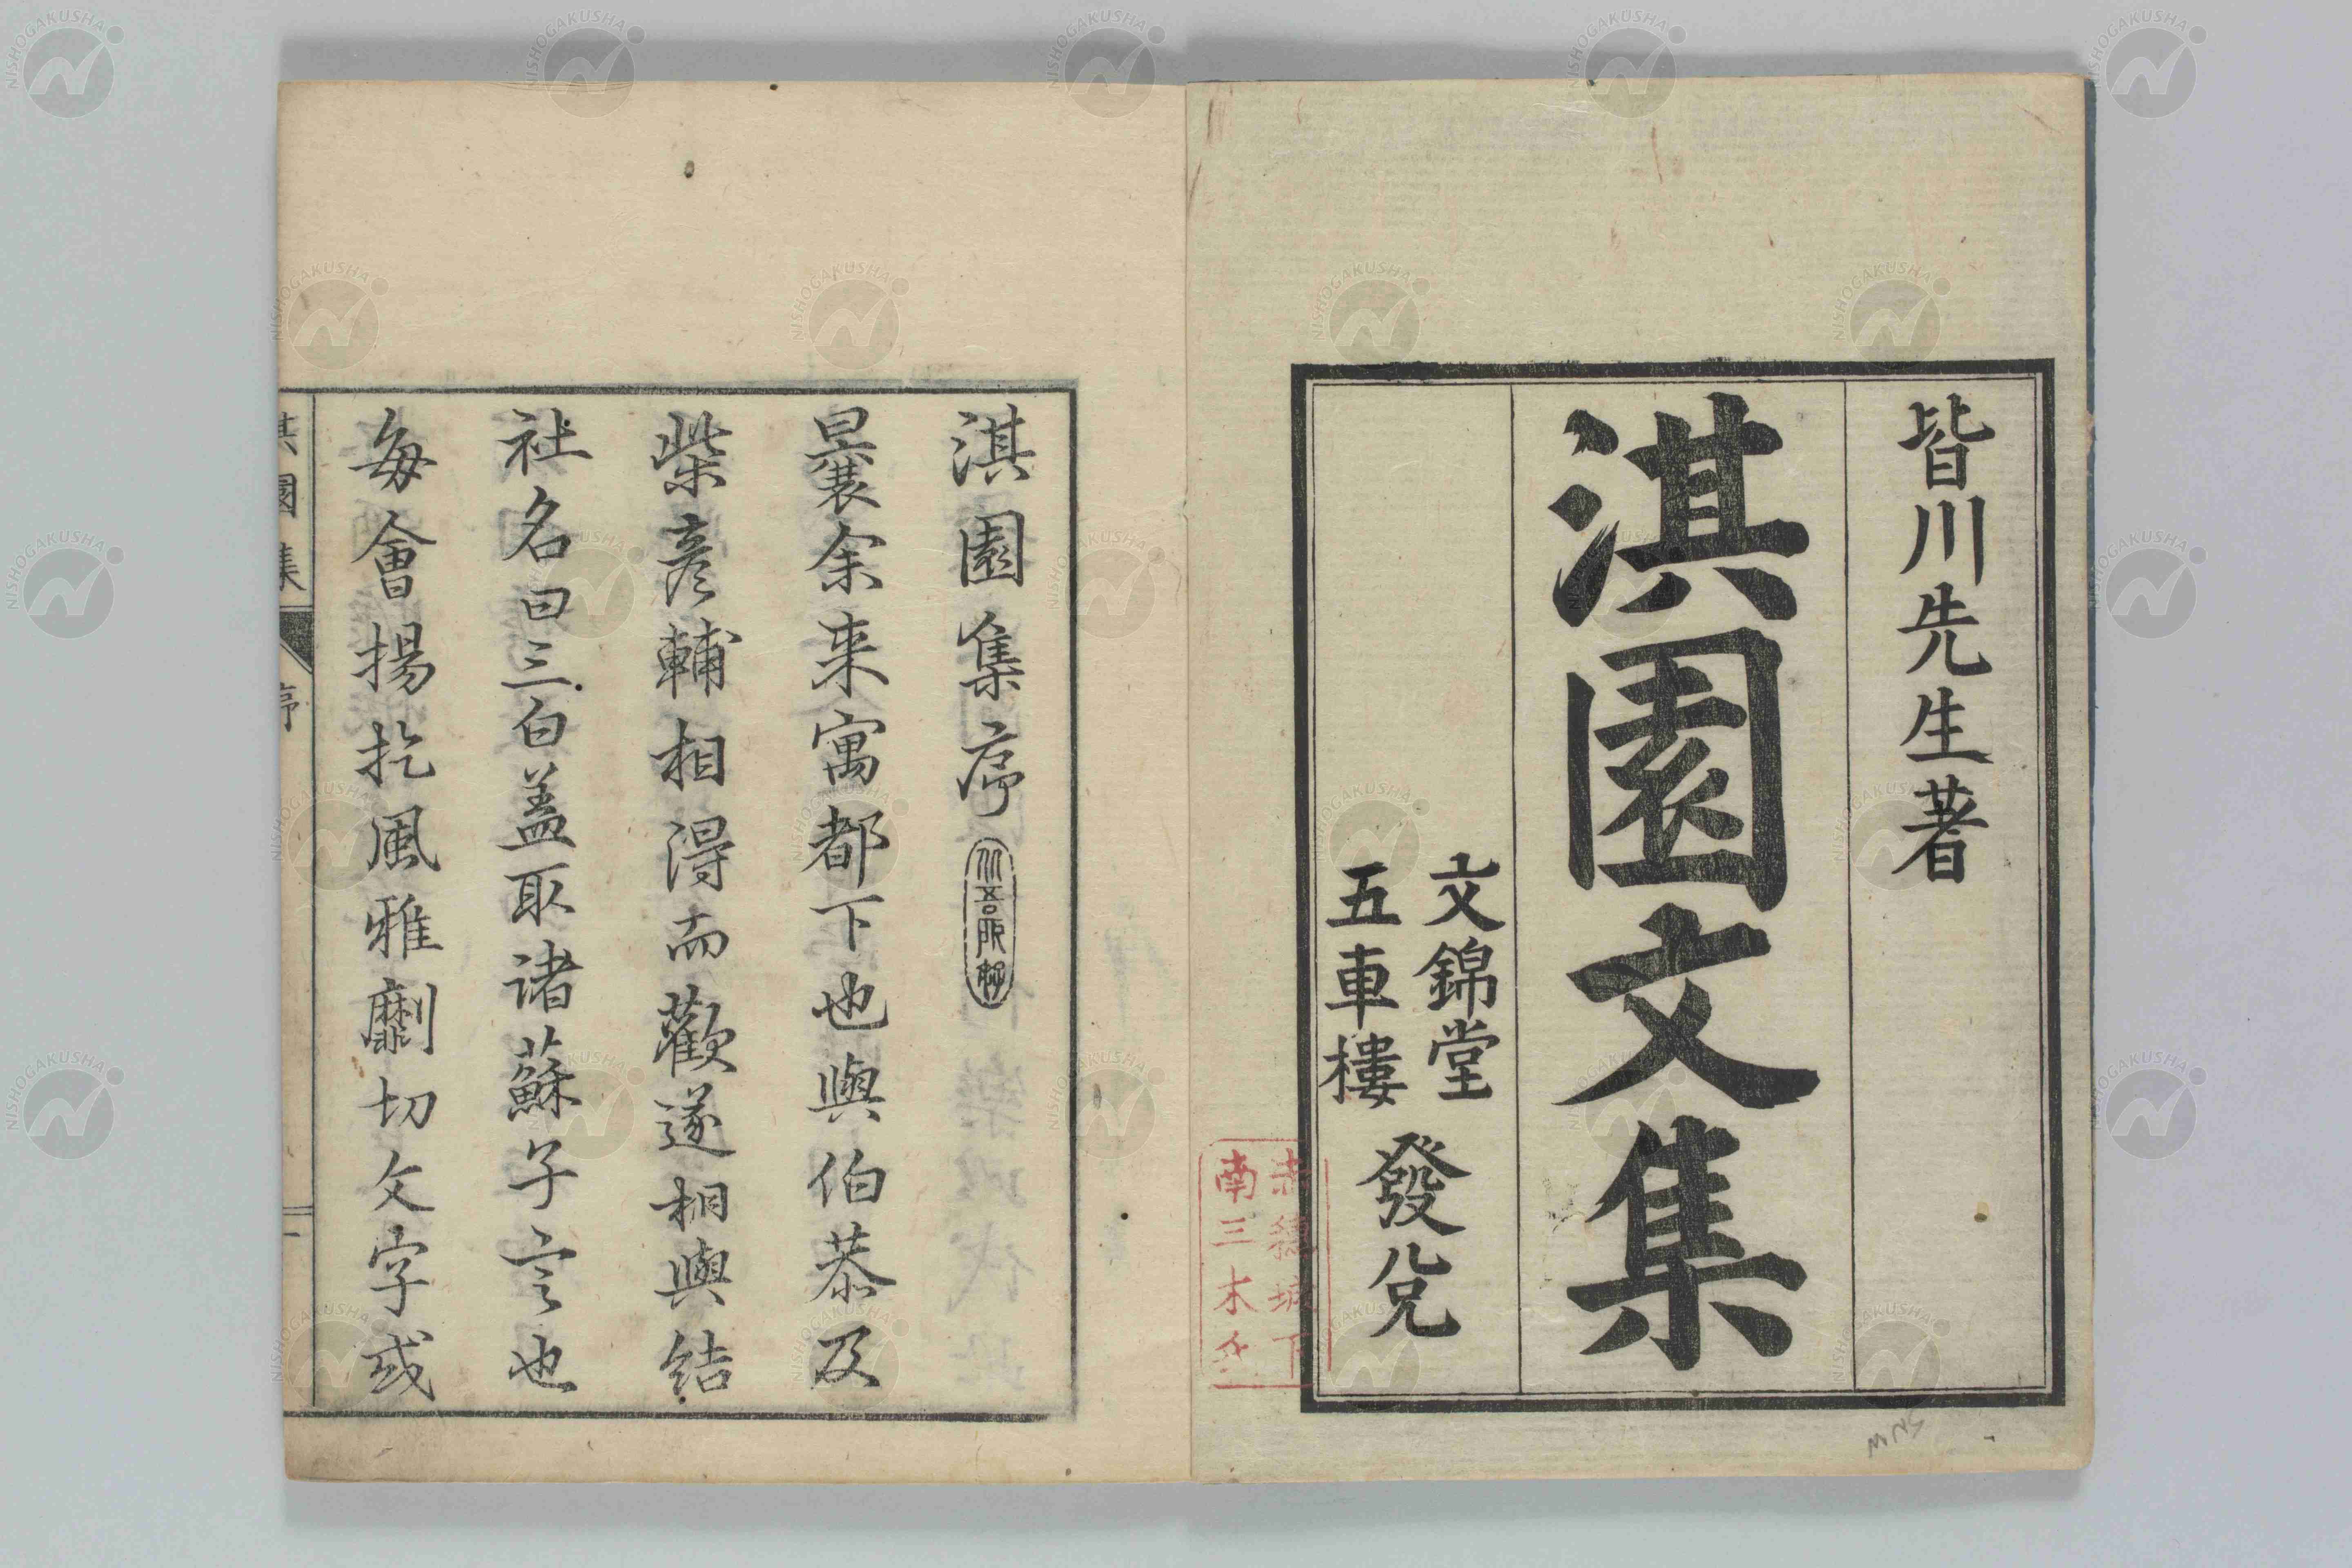 皆川先生著
淇園文集
文錦堂
五車樓
發兌
赤穗城下
南三木
淇園集序
曩余来寓都下也與伯恭及
柴彦輔相得而歡遂相與結
社名曰三白盖取諸蘇子言也
每會揚扢風雅劘切文字或
淇園集
序
一
NISHOGAKUSHA